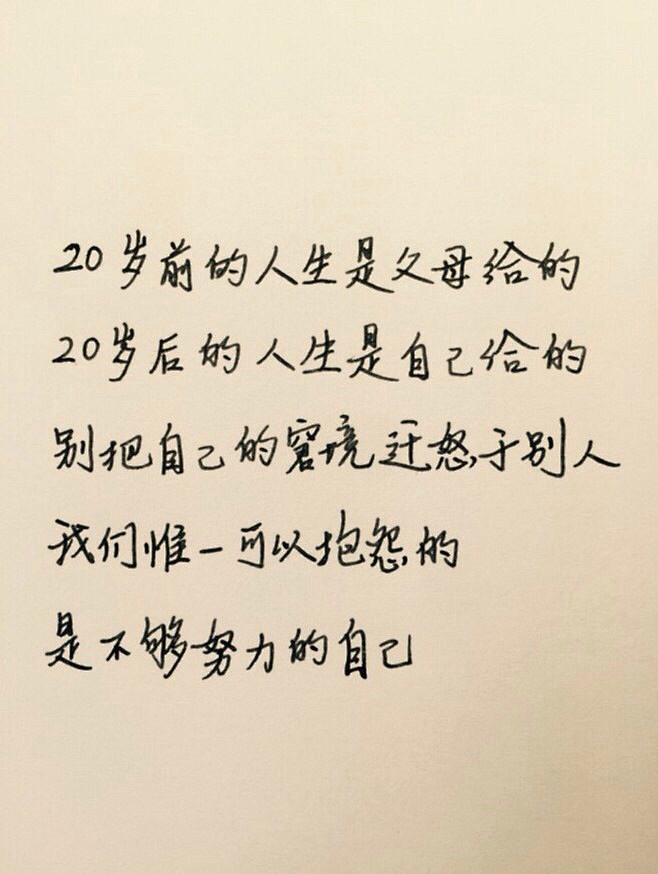 20岁前的人生是父母给的
20岁后的人生是自己给的
别把自己的窘境迁怒于别人
我们惟一可以抱怨的
是不够努力的自己